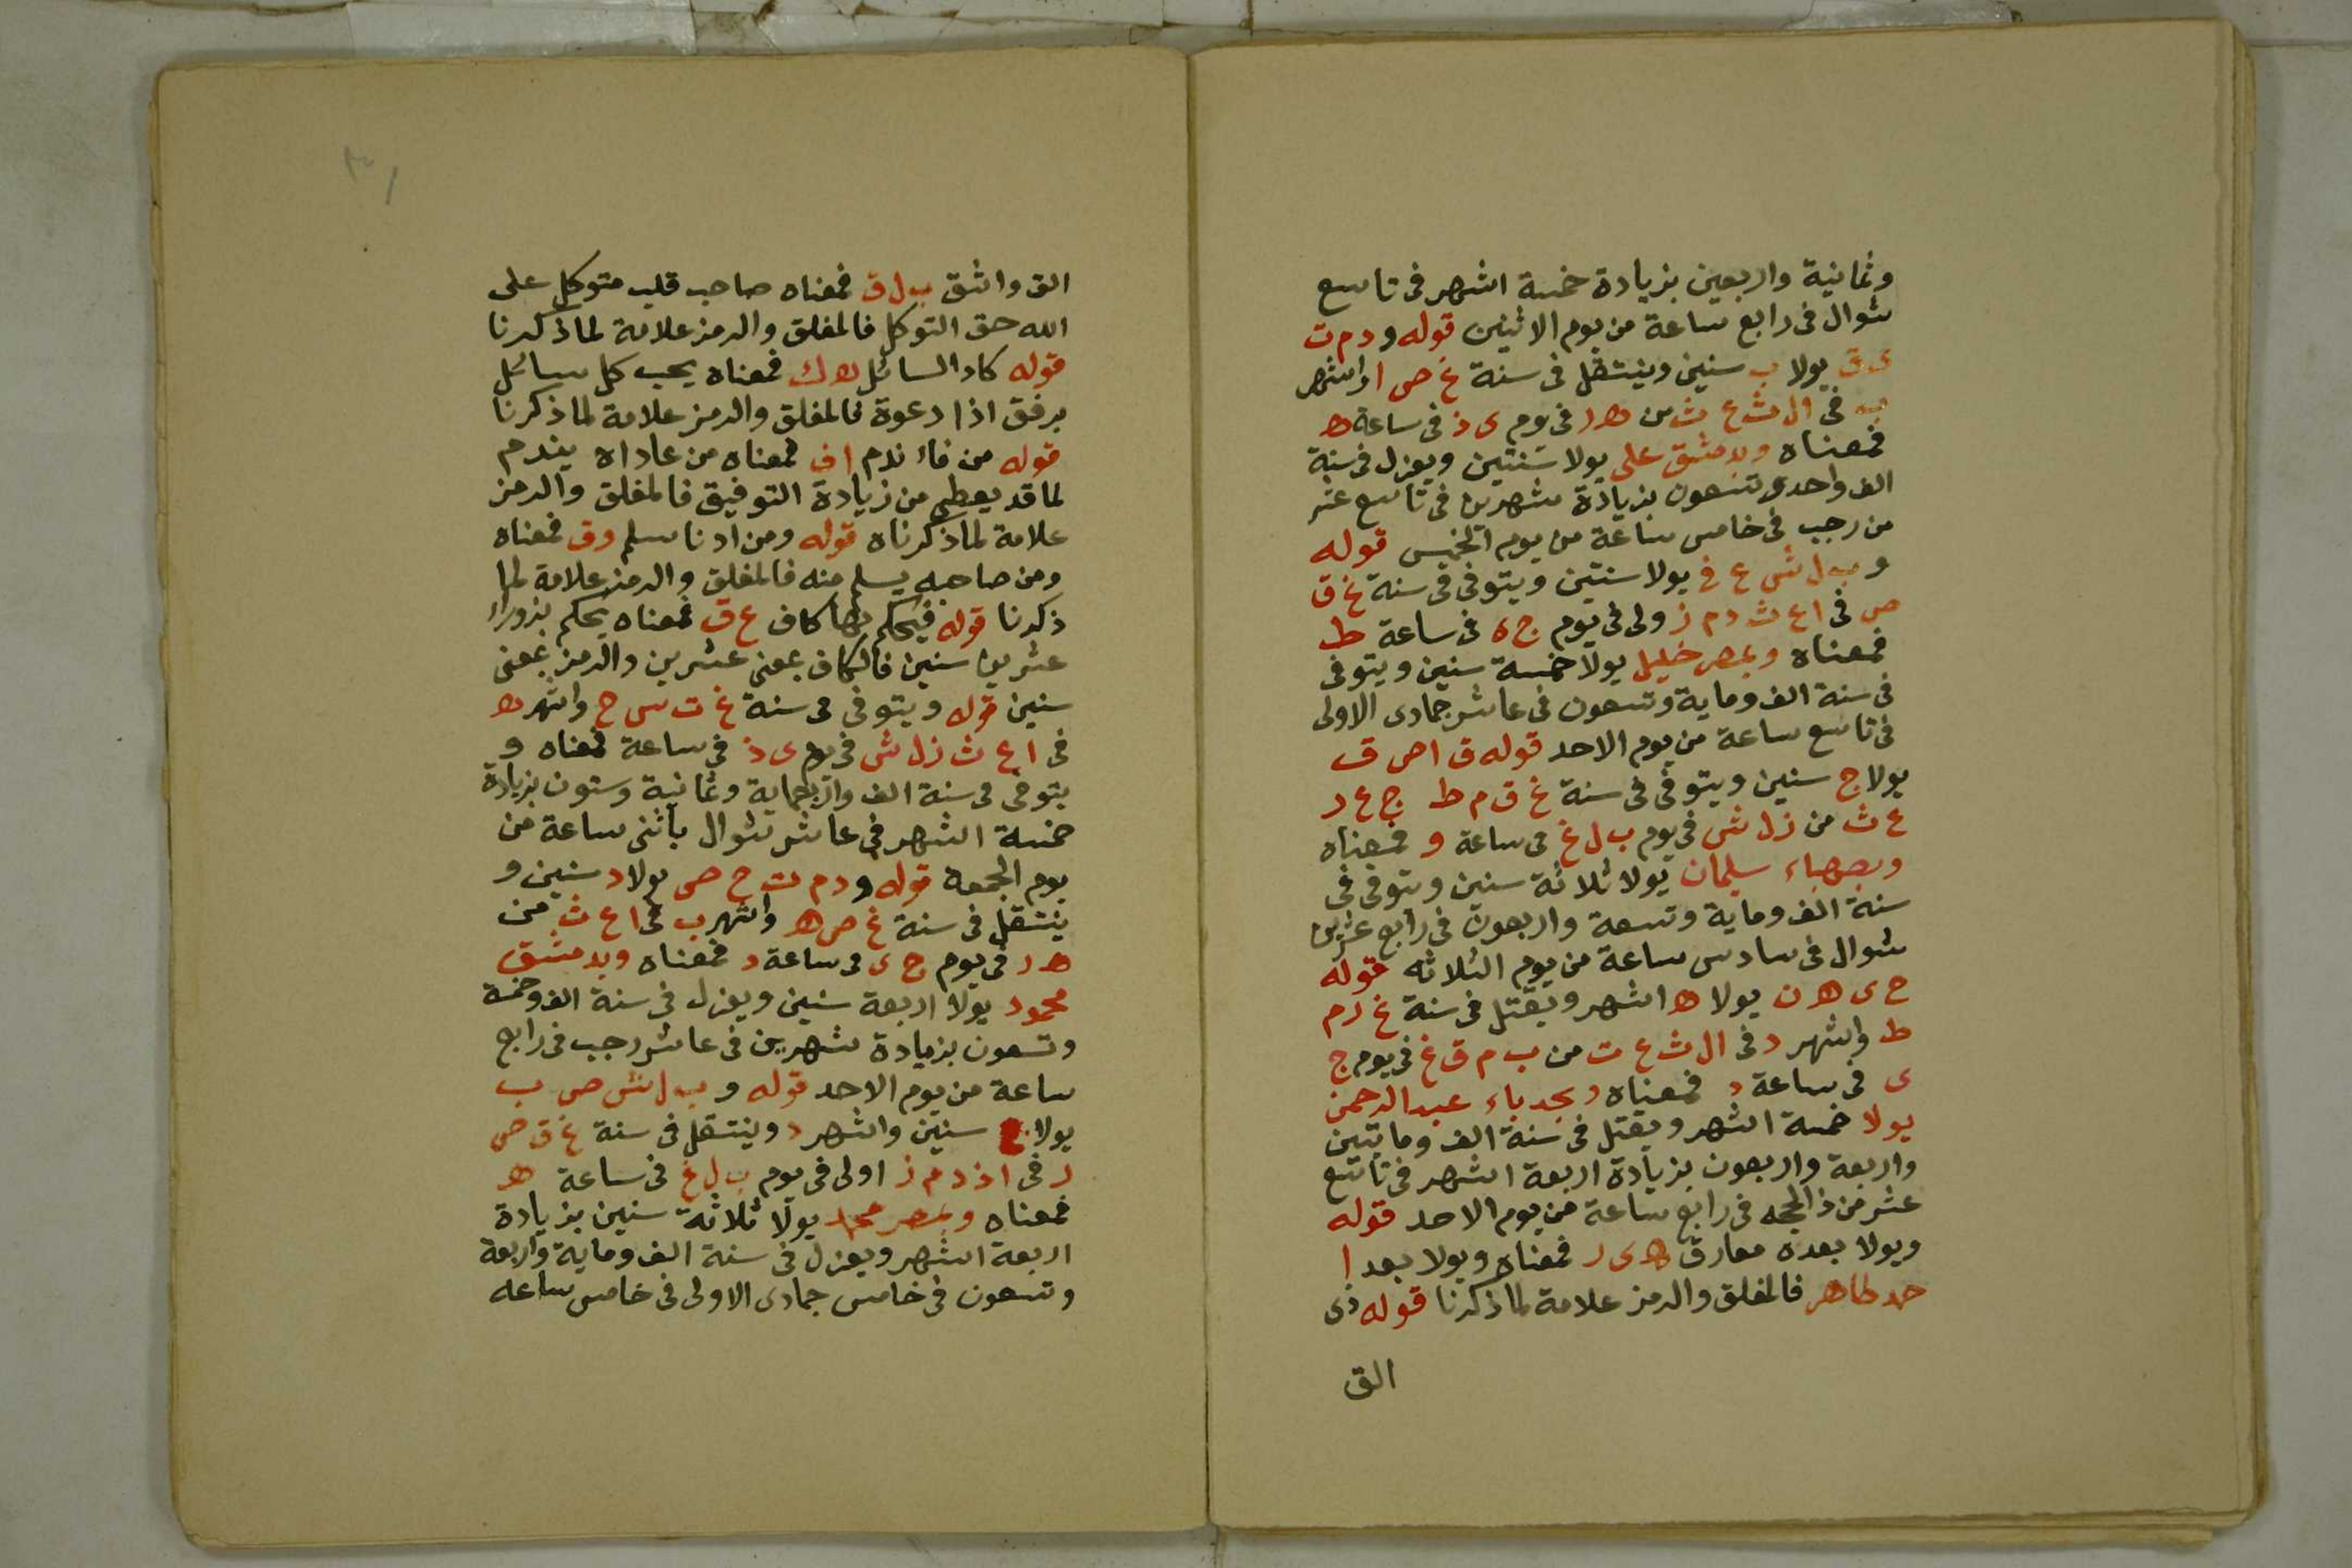 وثمانية واربعين بزيادة خمسة اشهر فى تاسع
شوال فى رابع ساعة من يوم الاثنين قوله و د م ت
ى ق يولا ب سنين وينتقل فى سنة غ ص ا واشهر
ب فى ال ث ع ث من ه د فى وم ى ذ فى ساعة ه
فمعناه وبدمشق على يولا سنتين ويعزل فى سنة
الف واحدى تسعون بزيادة شهرين فى تاسع عشر
من رجب فى خامس ساعة من يوم الخميس قوله
و ب ل ش ع ف يولا سنتين ويتوفى فى سنة غ ق
ص فى ا ع ث د م ز ولى فى يوم ج ه فى ساعة ط
فمعناه وبمصر خليل يولا خمسة سنين ويتوفى
فى سنة الف وماية وتسعون فى عاشر جمادى الاولى
فى تاسع ساعة من يوم الاحد قوله ق ا ص ف
يولا ج سنين ويتوفى فى سنة غ ق م ط ج ع د
ع ث من ز ل ش فى يوم ب ل غ فى ساعة و فمعناه
وبصهباء سليمان يولا ثلاثة سنين ويتوفى فى
سنة الف وماية وتسعة واربعون فى رابع عشرين
شوال فى سادس ساعة من يوم الثلاثه قوله
ح ى ه ن يولا ه اشهر ويقتل فى سنة غ ر م
ط واشهر د فى ال ث ع ت من ب م ق غ فى يوم ج
ى فى ساعة د فمعناه وبجدباء عبد الرحمن
يولا خمسة اشهر ويقتل فى سنة الف ومايتين
واربعة واربعون بزيادة اربعة اشهر فى تاسع
عشر من ذالحجه فى رابع ساعة من يوم الاحد قوله
ويولا بعده معارق ه ى ر فمعناه ويولا بعد ا
حمد طاهر فالمغلق والرمز علامة لما ذكرنا قوله ذى
الق
الق واثق ب ل ق فمعناه صاحب قلب متوكل على
الله حق التوكل فالمغلق والرمز علامة لما ذكرنا
قوله كاد السائل ه ك فمعناه يجب كل سائل
برفق اذا دعوة فالمغلق والرمز علامة لما ذكرنا
قوله من فاء ندم اف فمعناه من عاداه يندم
لما قد يعطى من زيادة التوفيق فالمغلق والرمز
علامة لما ذكرناه قوله ومن ادنا سلم وق فمعناه
ومن صاحبه يسلم منه فالمغلق والرمز علامة لما
ذكرنا قوله فيحكم بها كاف ع ق فمعناه يحكم بزوراء
عشرين سنين فالكاف بمعنى عشرين والرمز بمعنى
سنين قوله ويتوفى فى سنة غ ت س ح واشهر ه
فى ا ع ث ز ل ش فى يوم ى ذ فى ساعة فمعناه و
يتوفى فى سنة الف واربعماية وثمانية وستون بزيادة
خمسة اشهر فى عاشر شوال باثنى ساعة من
يوم الجمعة قوله و د م ت ح ص يولا د سنين و
ينتقل فى سنة غ ص ه واشهر ب فى ا ع ث من
ه د فى يوم ج ى فى ساعة د فمعناه وبدمشق
محمود يولا اربعة سنين ويعزل فى سنة الف وخمسة
وتسعون بزيادة شهرين فى عاشر رجب فى رابع
ساعة من يوم الاحد قوله و ب ل ش ص ب
يولا ج سنين واشهر د وينتقل فى سنة غ ق ص
د فى ا ذ د م ز اولى فى يوم ب ل غ فى ساعة ه
فمعناه وبمصر محمد يولا ثلاثة سنين بزيادة
اربعة اشهر ويعزل فى سنة الف وماية واربعة
وتسعون فى خامس جمادى الاولى فى خامس ساعه